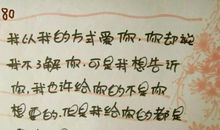 80
我以我的方式爱你．你却说
我不了解你．可是我想告诉
你．我也许给你的不是你
想要的．但是我给你的都是